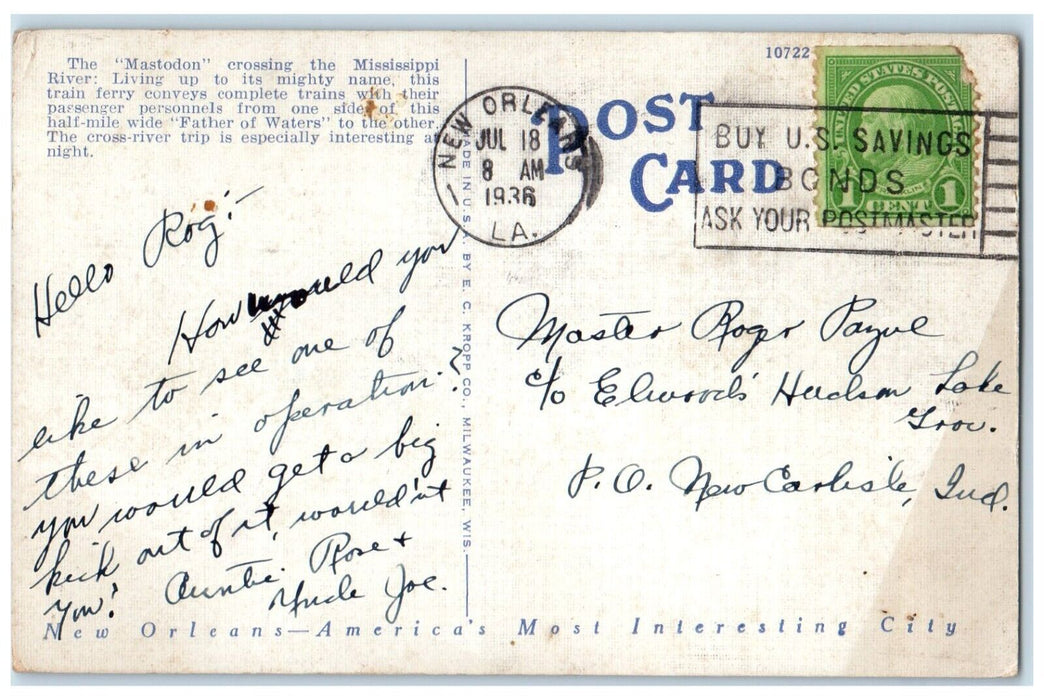 The "Mastodon" crossing the Mississippi
River: Living up to its mighty name, this
train ferry conveys complete trains with their
passenger personnels from one side of this
half-mile wide "Father of Waters" to the other.
The cross-river trip is especially interesting at
night.
10722
POST
CARD
NEW ORLEANS
JUL 18
8 AM
1936
LA.
BUY U.S. SAVINGS
BONDS
ASK YOUR POSTMASTER
UNITED STATES POSTAGE
1 CENT 1
MADE IN U.S.A. BY E. C. KROPP CO., MILWAUKEE, WIS.
Hello Rog:-
How would you
like to see one of
these in operation?
you would get a big
kick out of it, wouldn't
you? Auntie Rose +
Uncle Joe.
Master Roger Payne
c/o Elwood's Hudson Lake
P.O. New Carlisle, Ind.
New Orleans—America's Most Interesting City